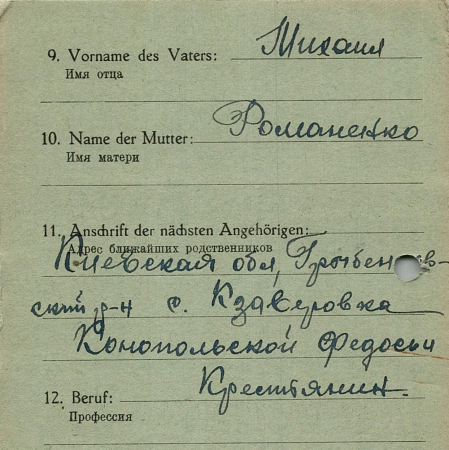 9. Vorname des Vaters: Михаил
Имя отца
10. Name der Mutter: Романенко
Имя матери
11. Anschrift der nächsten Angehörigen:
Адрес ближайших родственников
Киевская обл,
ский р-н с. Ксаверовка
Конопольской Федосьи
12. Beruf: Крестянин.
Профессия